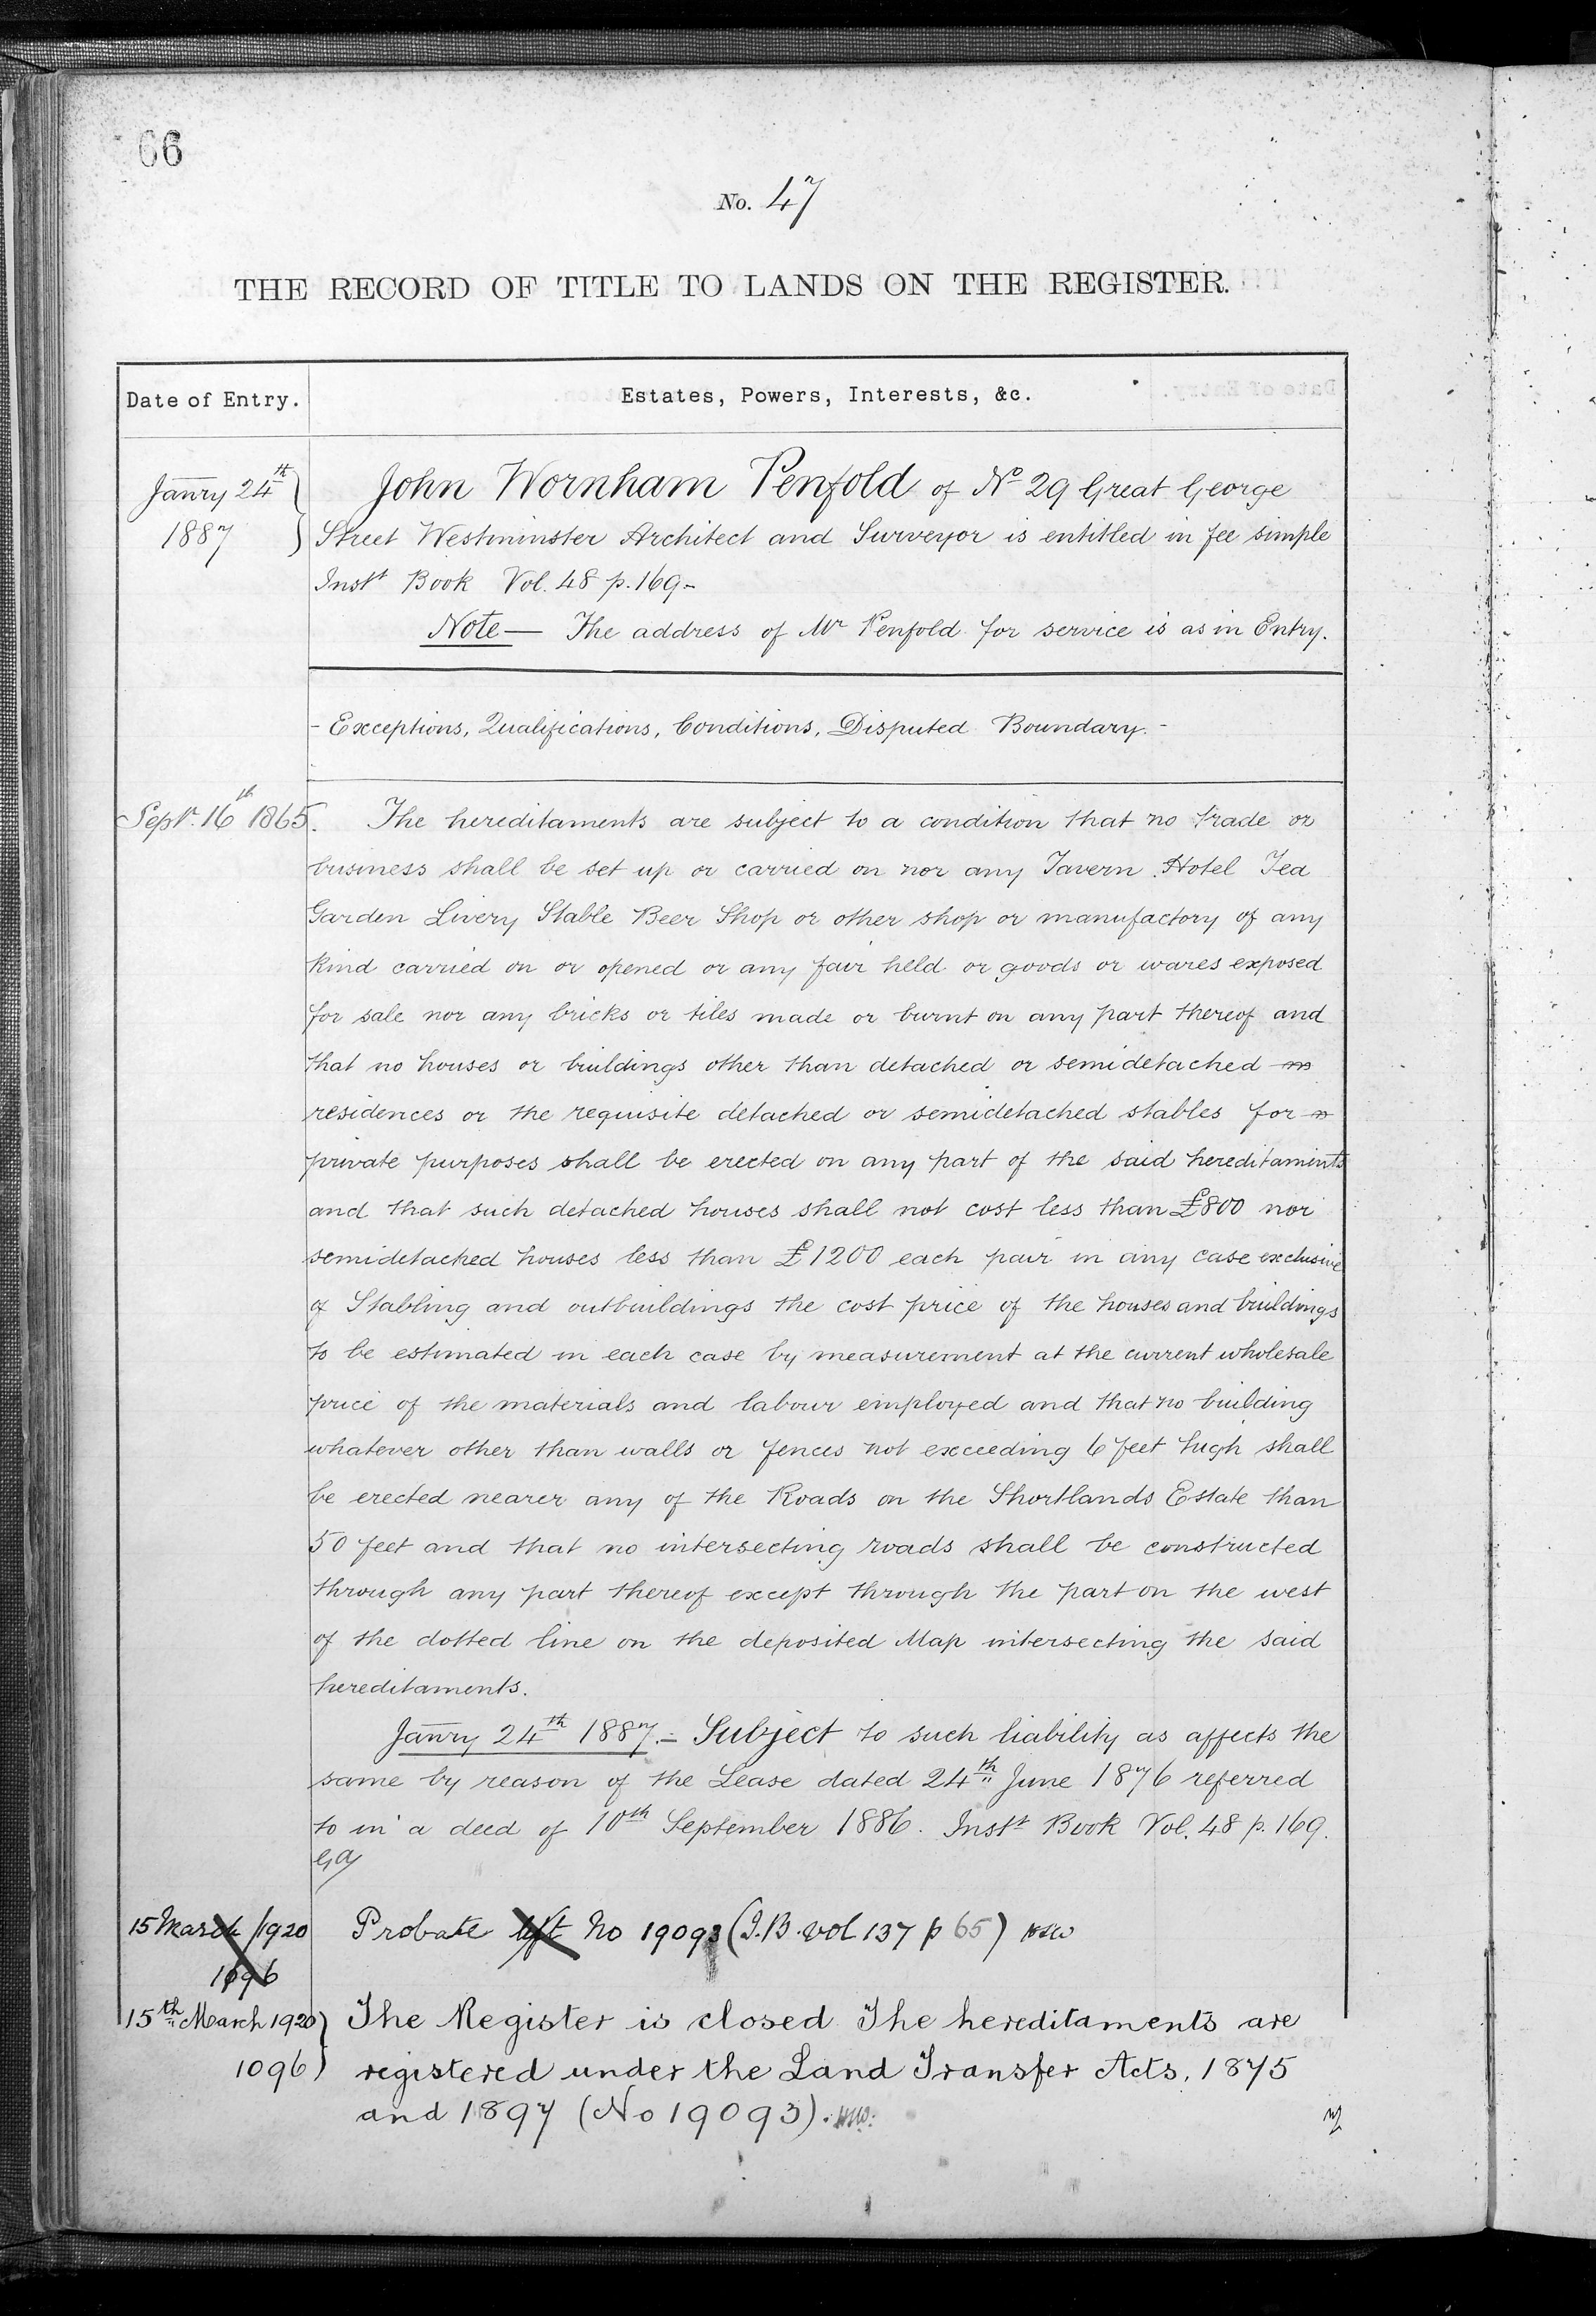 66
No. 47
THE RECORD OF TITLE TO LANDS ON THE REGISTER.
Date of Entry.
Estates, Powers, Interests, &c.
Janry 24th
1887
John Wornham Penfold of No 29 Great George
Street Westminster Architect and Surveyor is entitled in fee simple
Instt Book Vol. 48 p. 169-
Note — The address of Mr Penfold for service is as in Entry.
- Exceptions, Qualifications, Conditions, Disputed Boundary. -
Septr. 16th 1865.
The hereditaments are subject to a condition that no trade or
business shall be set up or carried on nor any Tavern Hotel Tea
Garden Livery Stable Beer Shop or other shop or manufactory of any
kind carried on or opened or any fair held or goods or wares exposed
for sale nor any bricks or tiles made or burnt on any part thereof and
that no houses or buildings other than detached or semidetached
residences or the requisite detached or semidetached stables for
private purposes shall be erected on any part of the said hereditaments
and that such detached houses shall not cost less than £800 nor
semidetached houses less than £1200 each pair in any case exclusive
of Stabling and outbuildings the cost price of the houses and buildings
to be estimated in each case by measurement at the current wholesale
price of the materials and labour employed and that no building
whatever other than walls or fences not exceeding 6 feet high shall
be erected nearer any of the Roads on the Shortlands Estate than
50 feet and that no intersecting roads shall be constructed
through any part thereof except through the part on the west
of the dotted line on the deposited Map intersecting the said
hereditaments.
Janry 24th 1887. - Subject to such liability as affects the
same by reason of the Lease dated 24th June 1876 referred
to in a deed of 10th September 1886. Instt Book Vol. 48 p. 169.
15 March 1920
1096
Probate left No 19093 (I.B. vol 137 p 65)
15th March 1920
1096
The Register is closed The hereditaments are
registered under the Land Transfer Acts, 1875
and 1897 (No 19093).